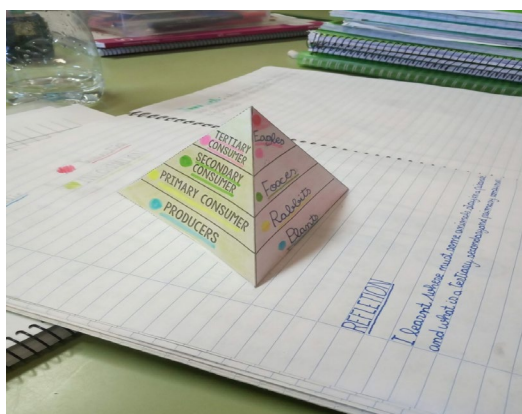 TERTIARY
CONSUMER
SECONDARY
CONSUMER
PRIMARY CONSUMER
PRODUCERS
Eagles
Foxes
Rabbits
Plants
REFLETION
I learnt where must some animals
and what is a Tertiary, secondary and primary consumer.